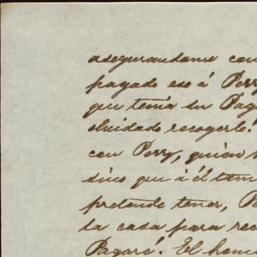 asegurandome con
pagado eso á Perry
que tenia su Paga
olvidado recogerlo.
con Perry, quien
sino que á él tam
pretende tener, P
la casa para rec
Pagaré. El hom